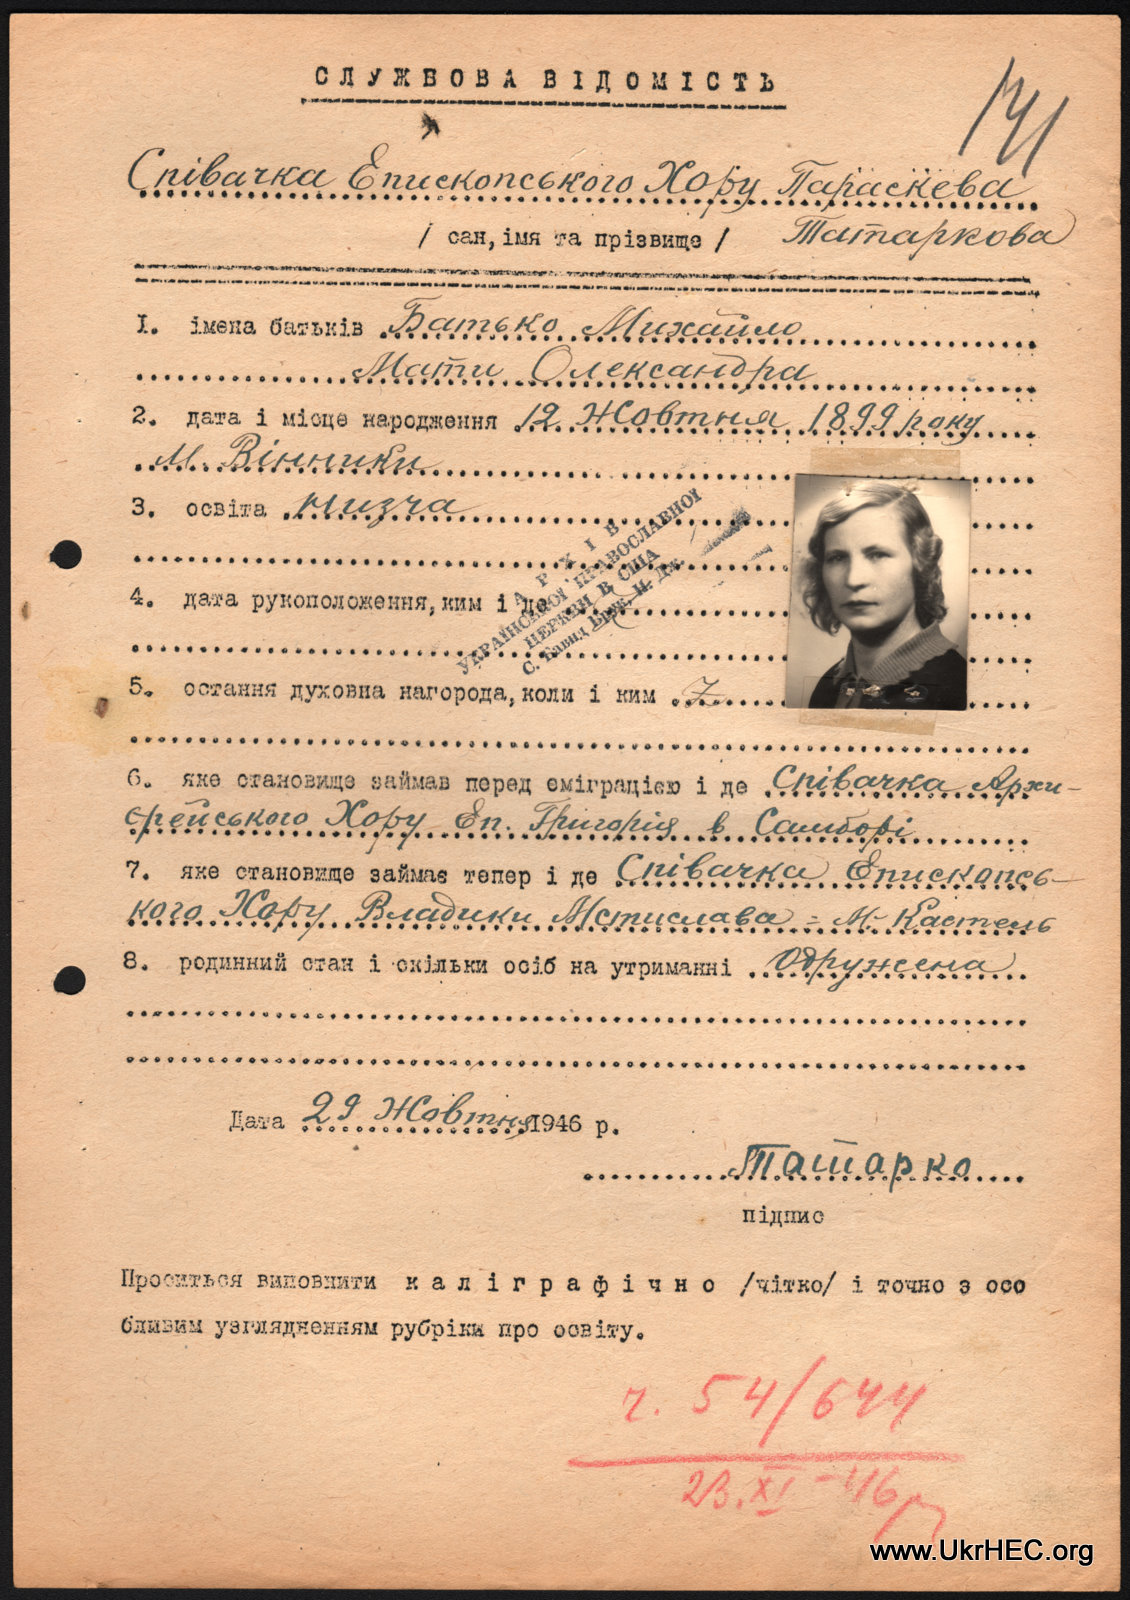 СЛУЖБОВА ВІДОМІСТЬ
141
Співачка Епископського Хору Параскева
/ сан, імя та прізвище / Татаркова
1. імена батьків Батько Михайло
Мати Олександра
2. дата і місце народження 12 Жовтня 1899 року
м. Вінники
3. освіта низча
АРХІВ
УКРАЇНСЬКОЇ ПРАВОСЛАВНОЇ
ЦЕРКВИ В США
С. Бавнд Брук, Н. Дж.
4. дата рукоположення, ким і де
5. остання духовна нагорода, коли і ким
6. яке становище займав перед еміграцією і де Співачка Архи-
єрейського Хору Еп. Григорія в Самборі
7. яке становище займає тепер і де Співачка Епископсь-
кого Хору Владики Мстислава - м. Кастель
8. родинний стан і скільки осіб на утриманні Одружена
Дата 29 Жовтня 1946 р.
Татарко
підпис
Проситься виповнити каліграфічно /чітко/ і точно з осо
бливим узглядненням рубріки про освіту.
ч. 54/644
23.XI-46р
www.UkrHEC.org